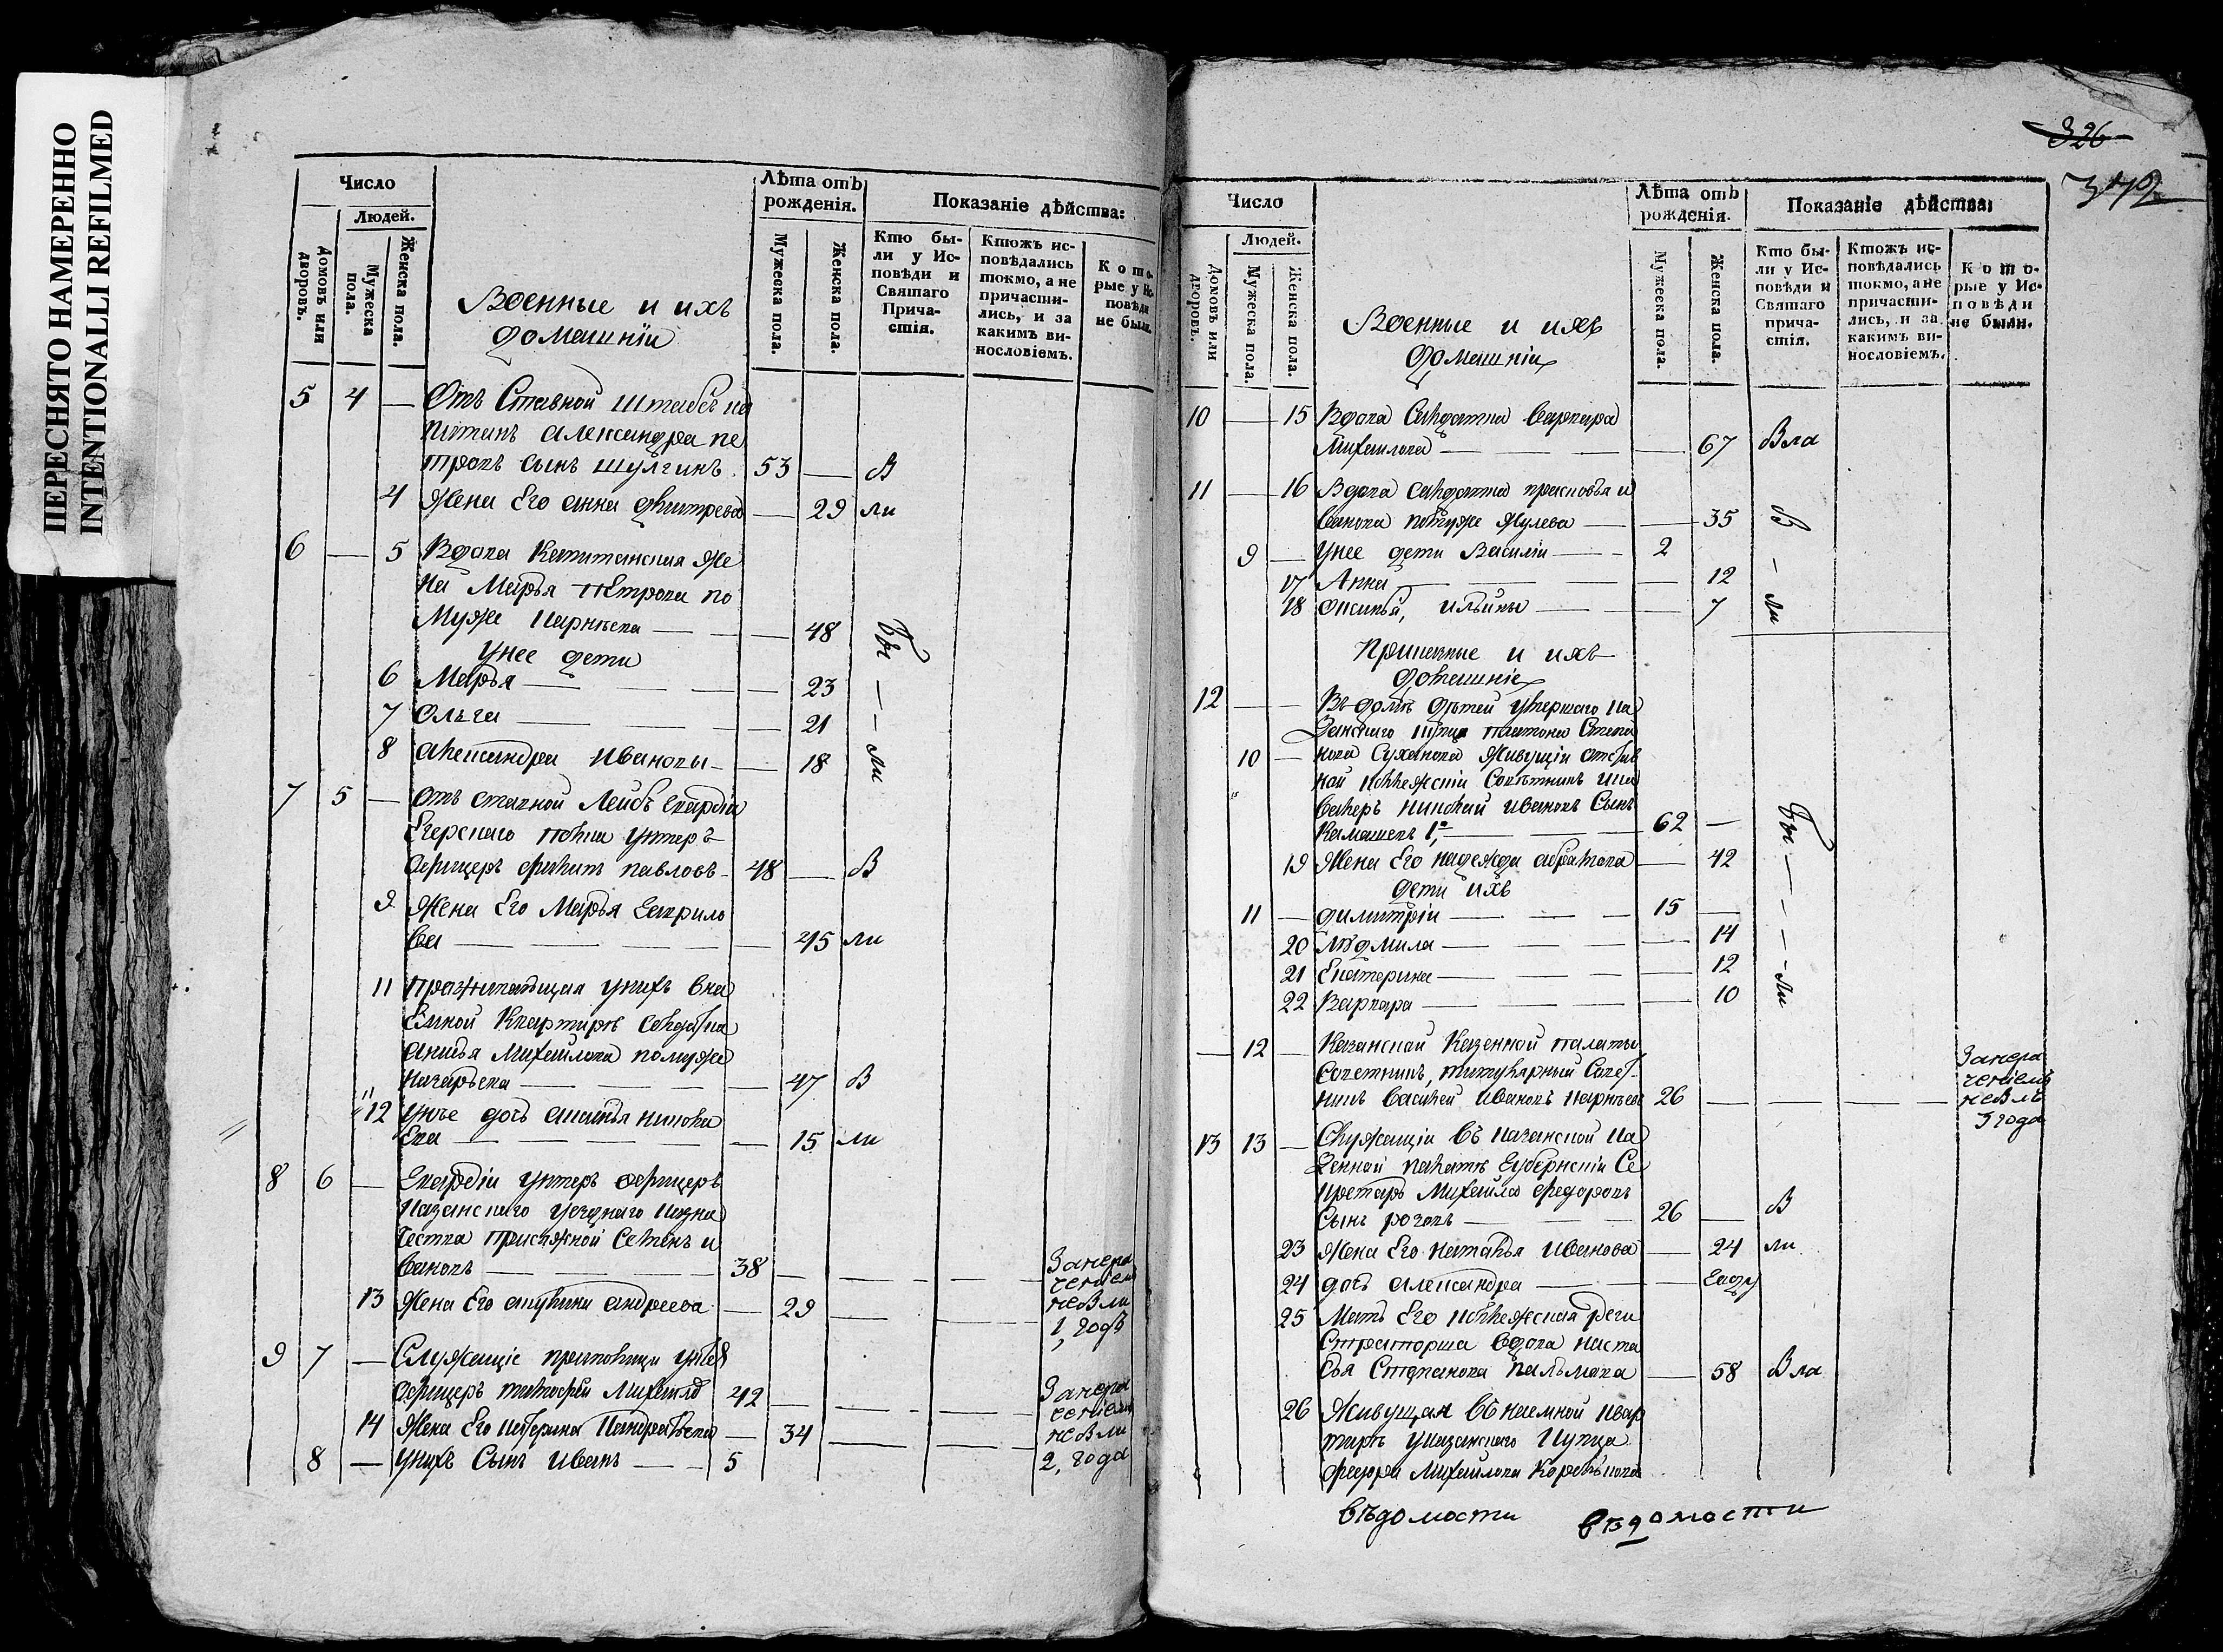 ПЕРЕСНЯТО НАМЕРЕННО
INTENTIONALLI REFILMED
Число
Людей.
Домовъ или дворовъ.
Мужеска пола.
Женска пола.
Военные и ихъ
домашнiи
Лѣта отъ
рожденiя.
Мужеска пола.
Женска пола.
Показанiе дѣйства:
Кто бы-
ли у Ис-
повѣди и
Святаго
Прича-
стiя.
Ктожъ ис-
повѣдались
токмо, а не
причасти-
лись, и за
какимъ ви-
нословiемъ.
Кото-
рые у Ис-
повѣди
не были.
5 4 — Отъ Ставной штабсъ ка
питанъ александра пе
тровъ сынъ шулгинъ. 53 — В
4 Жена Его анна дмитрева — 29 ли
6 — 5 Вдова Капитанская же
на Марья Петрова по
Муже Карнѣева — 48 Бы
унее дети
6 Марья — 23 —
7 Ольга — 21 —
8 александра Ивановы — 18 ли
7 5 — Отъ ставной Лейбъ гвардiи
Егерскаго полка унтеръ
Офицеръ филипъ павловъ 48 — В
9 Жена Его Марья гаврило
ва — 45 ли
11 проживающая унихъ вна
Емной Квартирѣ солдатка
Михайлова помуже
Назарьева — 47 В
12 унее дочь никола
Ева — 15 ли
8 6 — Гвардiи унтеръ офицеръ
Казанскаго уезднаго Казна
чества присяжной Семенъ и
вановъ 38 — Занера
ченiемъ
13 Жена Его акулина андреева — 29 — небыли
1, годъ
9 7 — Служащiе унтеръ
Офицеръ тимофей Михайло 42 — Занера
ченiемъ
14 Жена Его Катерина Кондратьева — 34 — небыли
8 — унихъ Сынъ Иванъ — 5 2, года
326
372
Число
Людей.
Домовъ или дворовъ.
Мужеска пола.
Женска пола.
Военные и ихъ
домашнiи
Лѣта отъ
рожденiя.
Мужеска пола.
Женска пола.
Показанiе дѣйства:
Кто бы-
ли у Ис-
повѣди и
Святаго
прича-
стiя.
Ктожъ ис-
повѣдались
токмо, а не
причасти-
лись, и за
какимъ ви-
нословiемъ.
Кото-
рые у Ис-
повѣди
не были.
10 — 15 Вдова Салдатка варвара
Михайлова — 67 Вла
11 — 16 Вдова салдатка прасковья и
ванова помуже Жулева — 35 В
9 — унее дети Василiи — 2 —
17 Анна — 12
18 ильины — 7 ли
Приказные и ихъ
домашнiе
12 — Въ домѣ дѣтей умершаго Ка
занскаго платона Степа
10 — нова Суханова Живущiи отстав
ной коллежскiи Советникъ и ка
валеръ николай ивановъ Сынъ
Камашевъ 1й — 62 — Бы
19 Жена Его надежда абрамова — 42 —
дети ихъ
11 — димитрiи — 15 —
20 Людмила — 14 —
21 Екатерина — 12 —
22 Варвара — 10 ли
— 12 — Казанской Казенной палаты
Советникъ, титулярный Совет
никъ василей Ивановъ Карнѣевъ 26 — Занера
ченiемъ
небылъ
3 года
13 13 — Служащiи въ казанской Ка
зенной палатѣ губернскiи Се
кретарь Михайла федоровъ
Сынъ розовъ — 26 — В
23 Жена Его наталья Иванова — 24 ли
24 дочь александра —
25 Мать Его коллежская реги
страторша вдова наста
сья Степанова пальмова — 58 Вла
26 Живущая въ наемной квар
тирѣ указанскаго Купца
федора Михайлова
вѣдомости вѣдомости